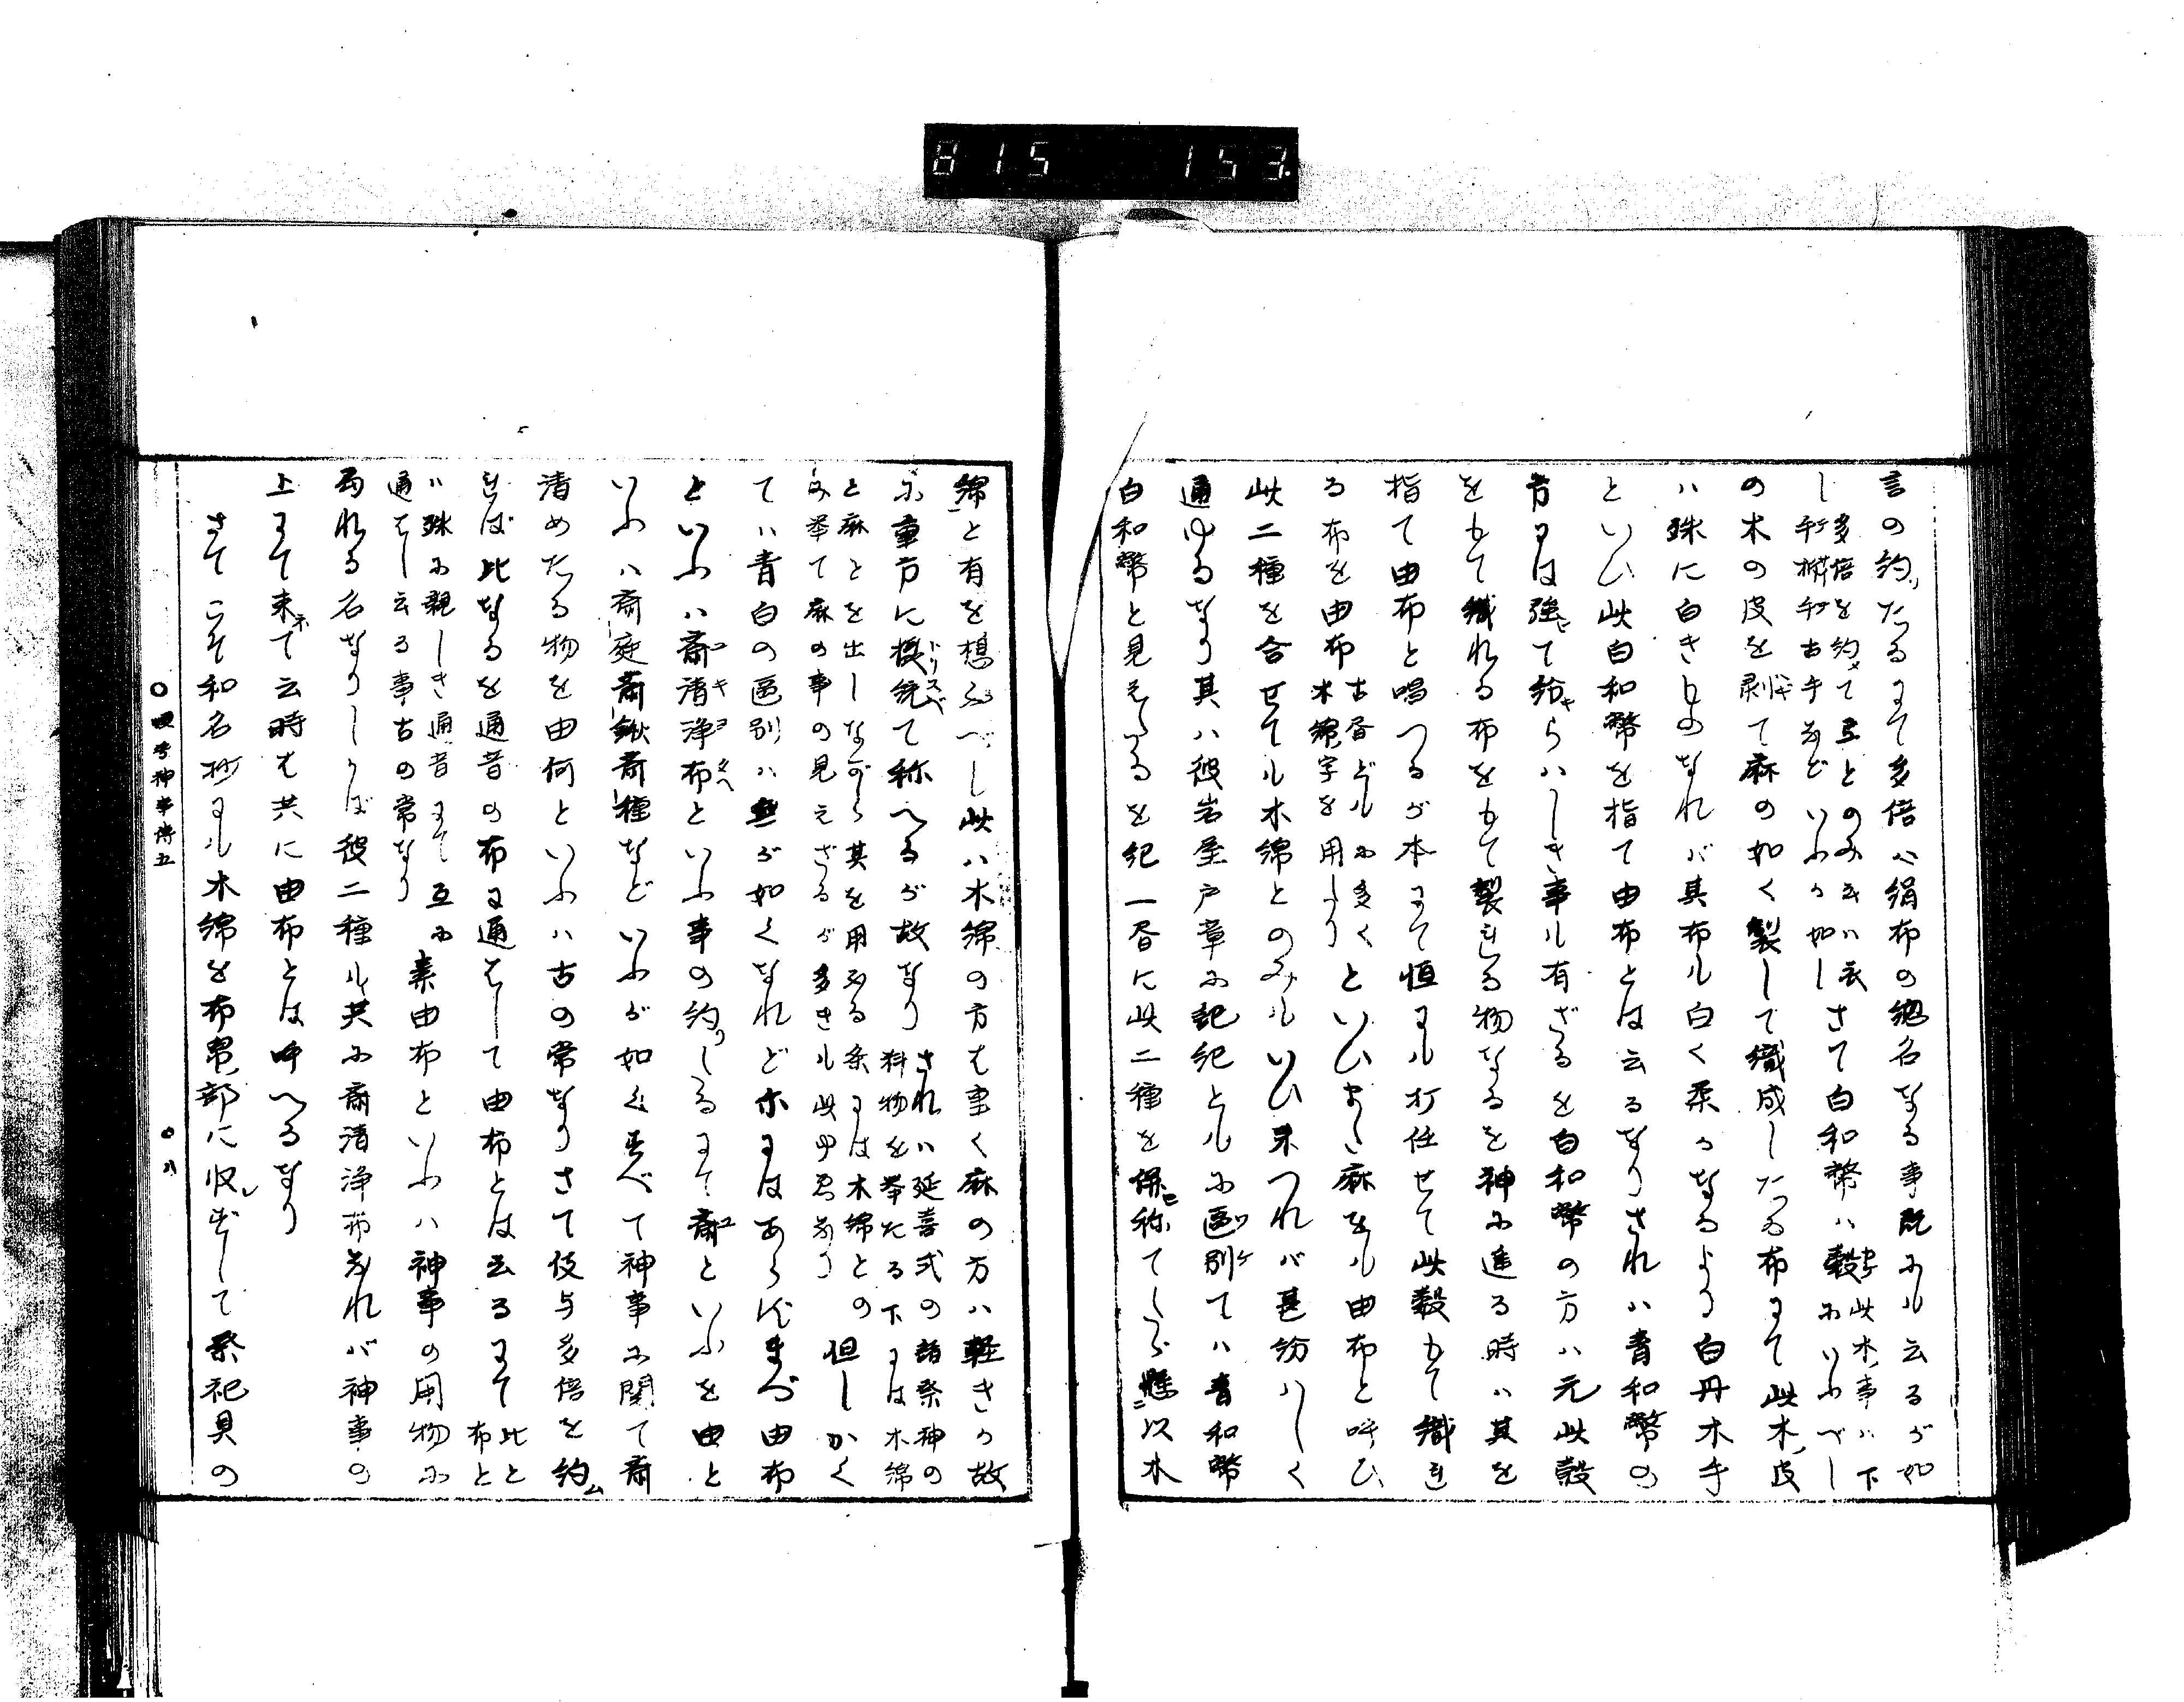 815 153
言の約りたるにて多倍ハ絹布の惣名なる事既にも云るが如
し多倍を約めて弖とのみ云ハ衣
手襷手古手などいふか如しさて白和幣ハ穀此木の事ハ下にいふべし
の木の皮を剥て麻の如く製して織成したる布にて此木の皮
ハ殊に白きものなれバ其布も白く柔かなるより白丹木手
といひ此白和幣を指て由布とは云るなりされハ青和幣の
方には強て給らハしき事も有ざるを白和幣の方ハ元此穀
をもて織れる布をもて製れる物なるを神に進る時ハ其を
指て由布と唱つるが本にて恒にも打任せて此穀もて織れ
る布を由布古昏どもに多く木綿ノ字を用たりといひまた麻をも由布と呼ひ
此二種を合せても木綿とのみもいひ来つれバ甚紛ハしく
通ゆるなり其ハ彼岩屋戸章に記紀ともに区別てハ青和幣
白和幣と見えたるを紀一昏に此二種を倶称てたゞ懸以木
綿と有を想ふべし此ハ木綿の方を重く麻の方ハ軽きか故
に重方に摂統て称へるが故なりされハ延喜式の諸祭神の
料物を挙たる下には木綿
と麻とを出しながら其を用ゐる条には木綿との
み挙て麻の事の見えざるが多きも此由ありて但しかく
てハ青白の区別ハ無が如くなれど亦にはあらずまづ由布
といふハ斎清浄布といふ事の約りしるにて斎といふを由と
いふハ斎庭斎鍬斎種などいふが如くすべて神事に関て斎
清めたる物を由何といふハ古の常なりさて伎与多倍を約
れば比なるを通音の布に通はして由布とは云るにて比と
布と
ハ殊に親しき通音にて互に
通はし云る事古の常なり素由布といふハ神事の用物に
因れる名なりしかば彼二種も共に斎清浄布なれバ神事の
上にて末て云時は共に由布とは呼へるなり
さてこそ和名抄にも木綿を布帛ノ部に収ずして祭祀具の
神事傳五
八